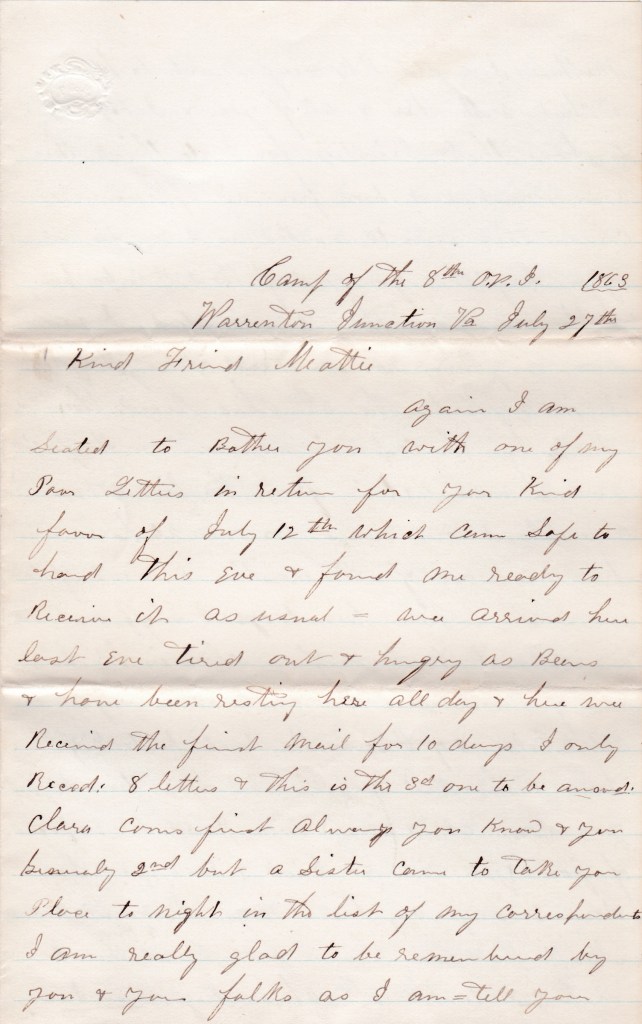 Camp of the 8th O.V.I. 1863
Warrenton Junction Va July 27th
Kind Friend Mattie
again I am
Seated to Bother you with one of my
Poor Letters in return for your Kind
favor of July 12th which came Safe to
hand this Eve & found me ready to
Receive it as usual = wee arrived here
last Eve tired out & hungry as Bears
& have been resting here all day & here wee
Received the first Mail for 10 days I only
Recod: 8 letters & this is the 3d one to be answd.
Clara coms first Always you Know & you
Generaly 2nd but a Sister came to take your
Place to night in the list of my correspondents
I am really glad to be rememberd by
you & your folks as I am = tell your